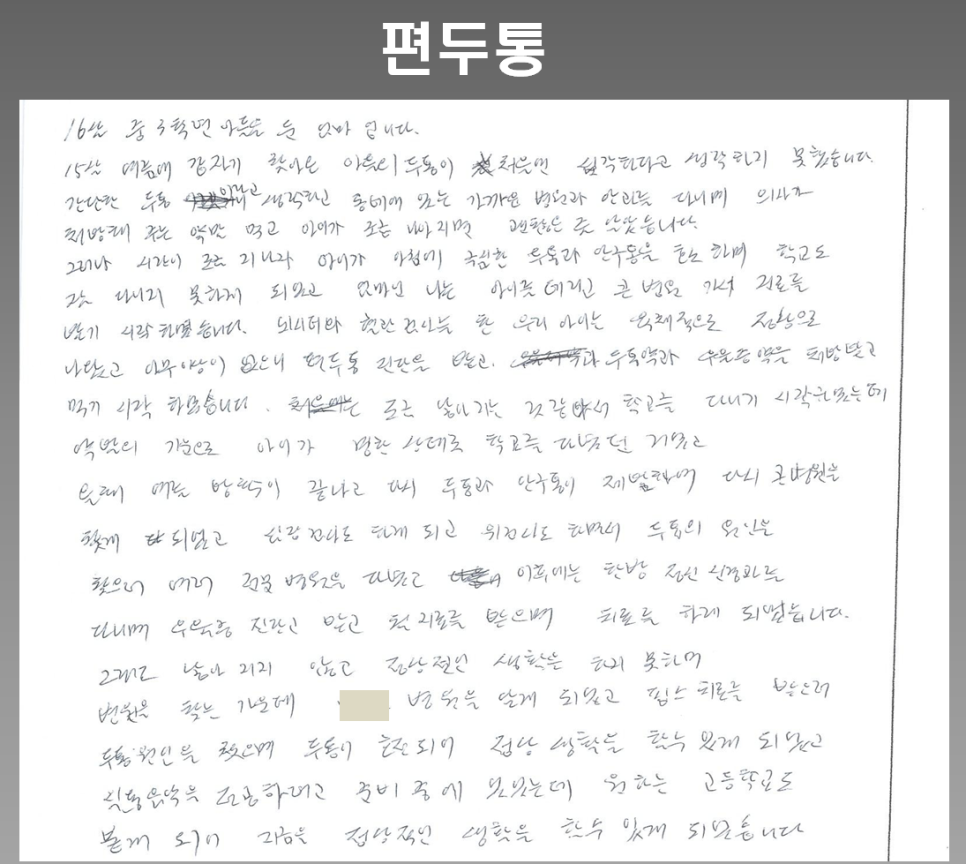 편두통
16살 중3학년 아들을 둔 엄마 입니다.
15살 여름에 갑자기 찾아온 아들의 두통이 처음엔 심각하다고 생각하지 못했습니다.
간단한 두통 이라고 생각하고 동네에 있는 가까운 병원과 안과를 다니며 의사가
처방해 주는 약만 먹고 아이가 조금 나아지면 괜찮은 줓 알았습니다.
그러나 시간이 조금 지나자 아이가 아침에 극심한 두통과 안구통을 호소하며 학교도
잘 다니지 못하게 되었고 엄마인 나는 아이를 데리고 큰 병원 가서 치료를
받기 시작 하였습니다. 뇌시티와 혈관검사를 한 우리 아이는 육체적으로 정상으로
나왔고 아무이상이 없으니 편두통 진단을 받고, 두통약과 우울증약을 처방받고
먹기 시작 하였습니다. 조금 낳아 가는 것 같아서 학교를 다니기 시작하였는데
약밥의 기운으로 아이가 멍한 상태로 학교를 다녔던 거였고
올해 여름 방학이 끝나고 다시 두통과 안구통이 재발하여 다시 큰병원을
찾게 되었고 심장검사도 하게 되고 위검사도 하면서 두통의 원인을
찾으러 여러 전문 병원을 다녔고 이후에는 한방 정신 신경과를
다니며 우울증 진단도 받고 침 치료를 받으며 치료를 하게 되었습니다.
그래도 낳아 지지 않고 정상적인 생활은 하지 못하며
병원을 찾는 가운데 병원을 알게 되었고 핌스 치료를 받으러
두통원인을 찾으며 두통이 호전되어 정상 생활을 할수 있게 되었고
실용음악을 전공하려고 준비 중에 있었는데 원하는 고등학교도
붙게 되어 지금은 정상적인 생활을 할수 있게 되었습니다